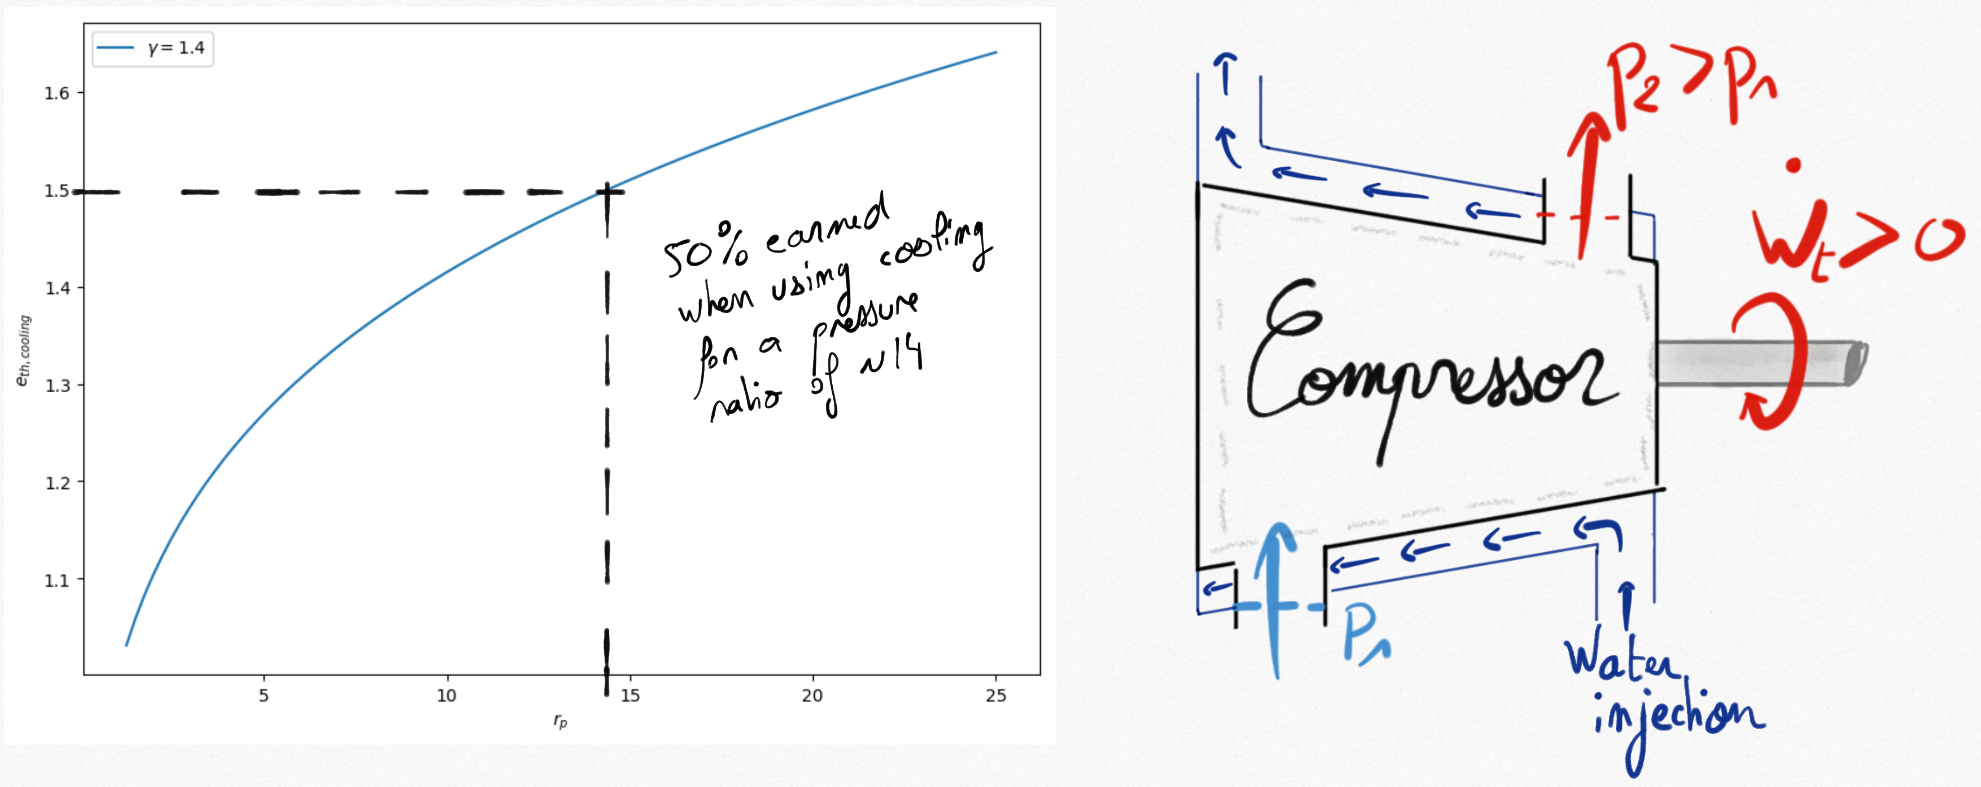 γ = 1.4
1.6
1.5
1.4
1.3
1.2
1.1
e_th,cooling
5
10
15
20
25
r_p
50% earned
when using cooling
for a pressure
ratio of ~14
Compressor
P2 > P1
Ẇt > 0
P1
Water
injection